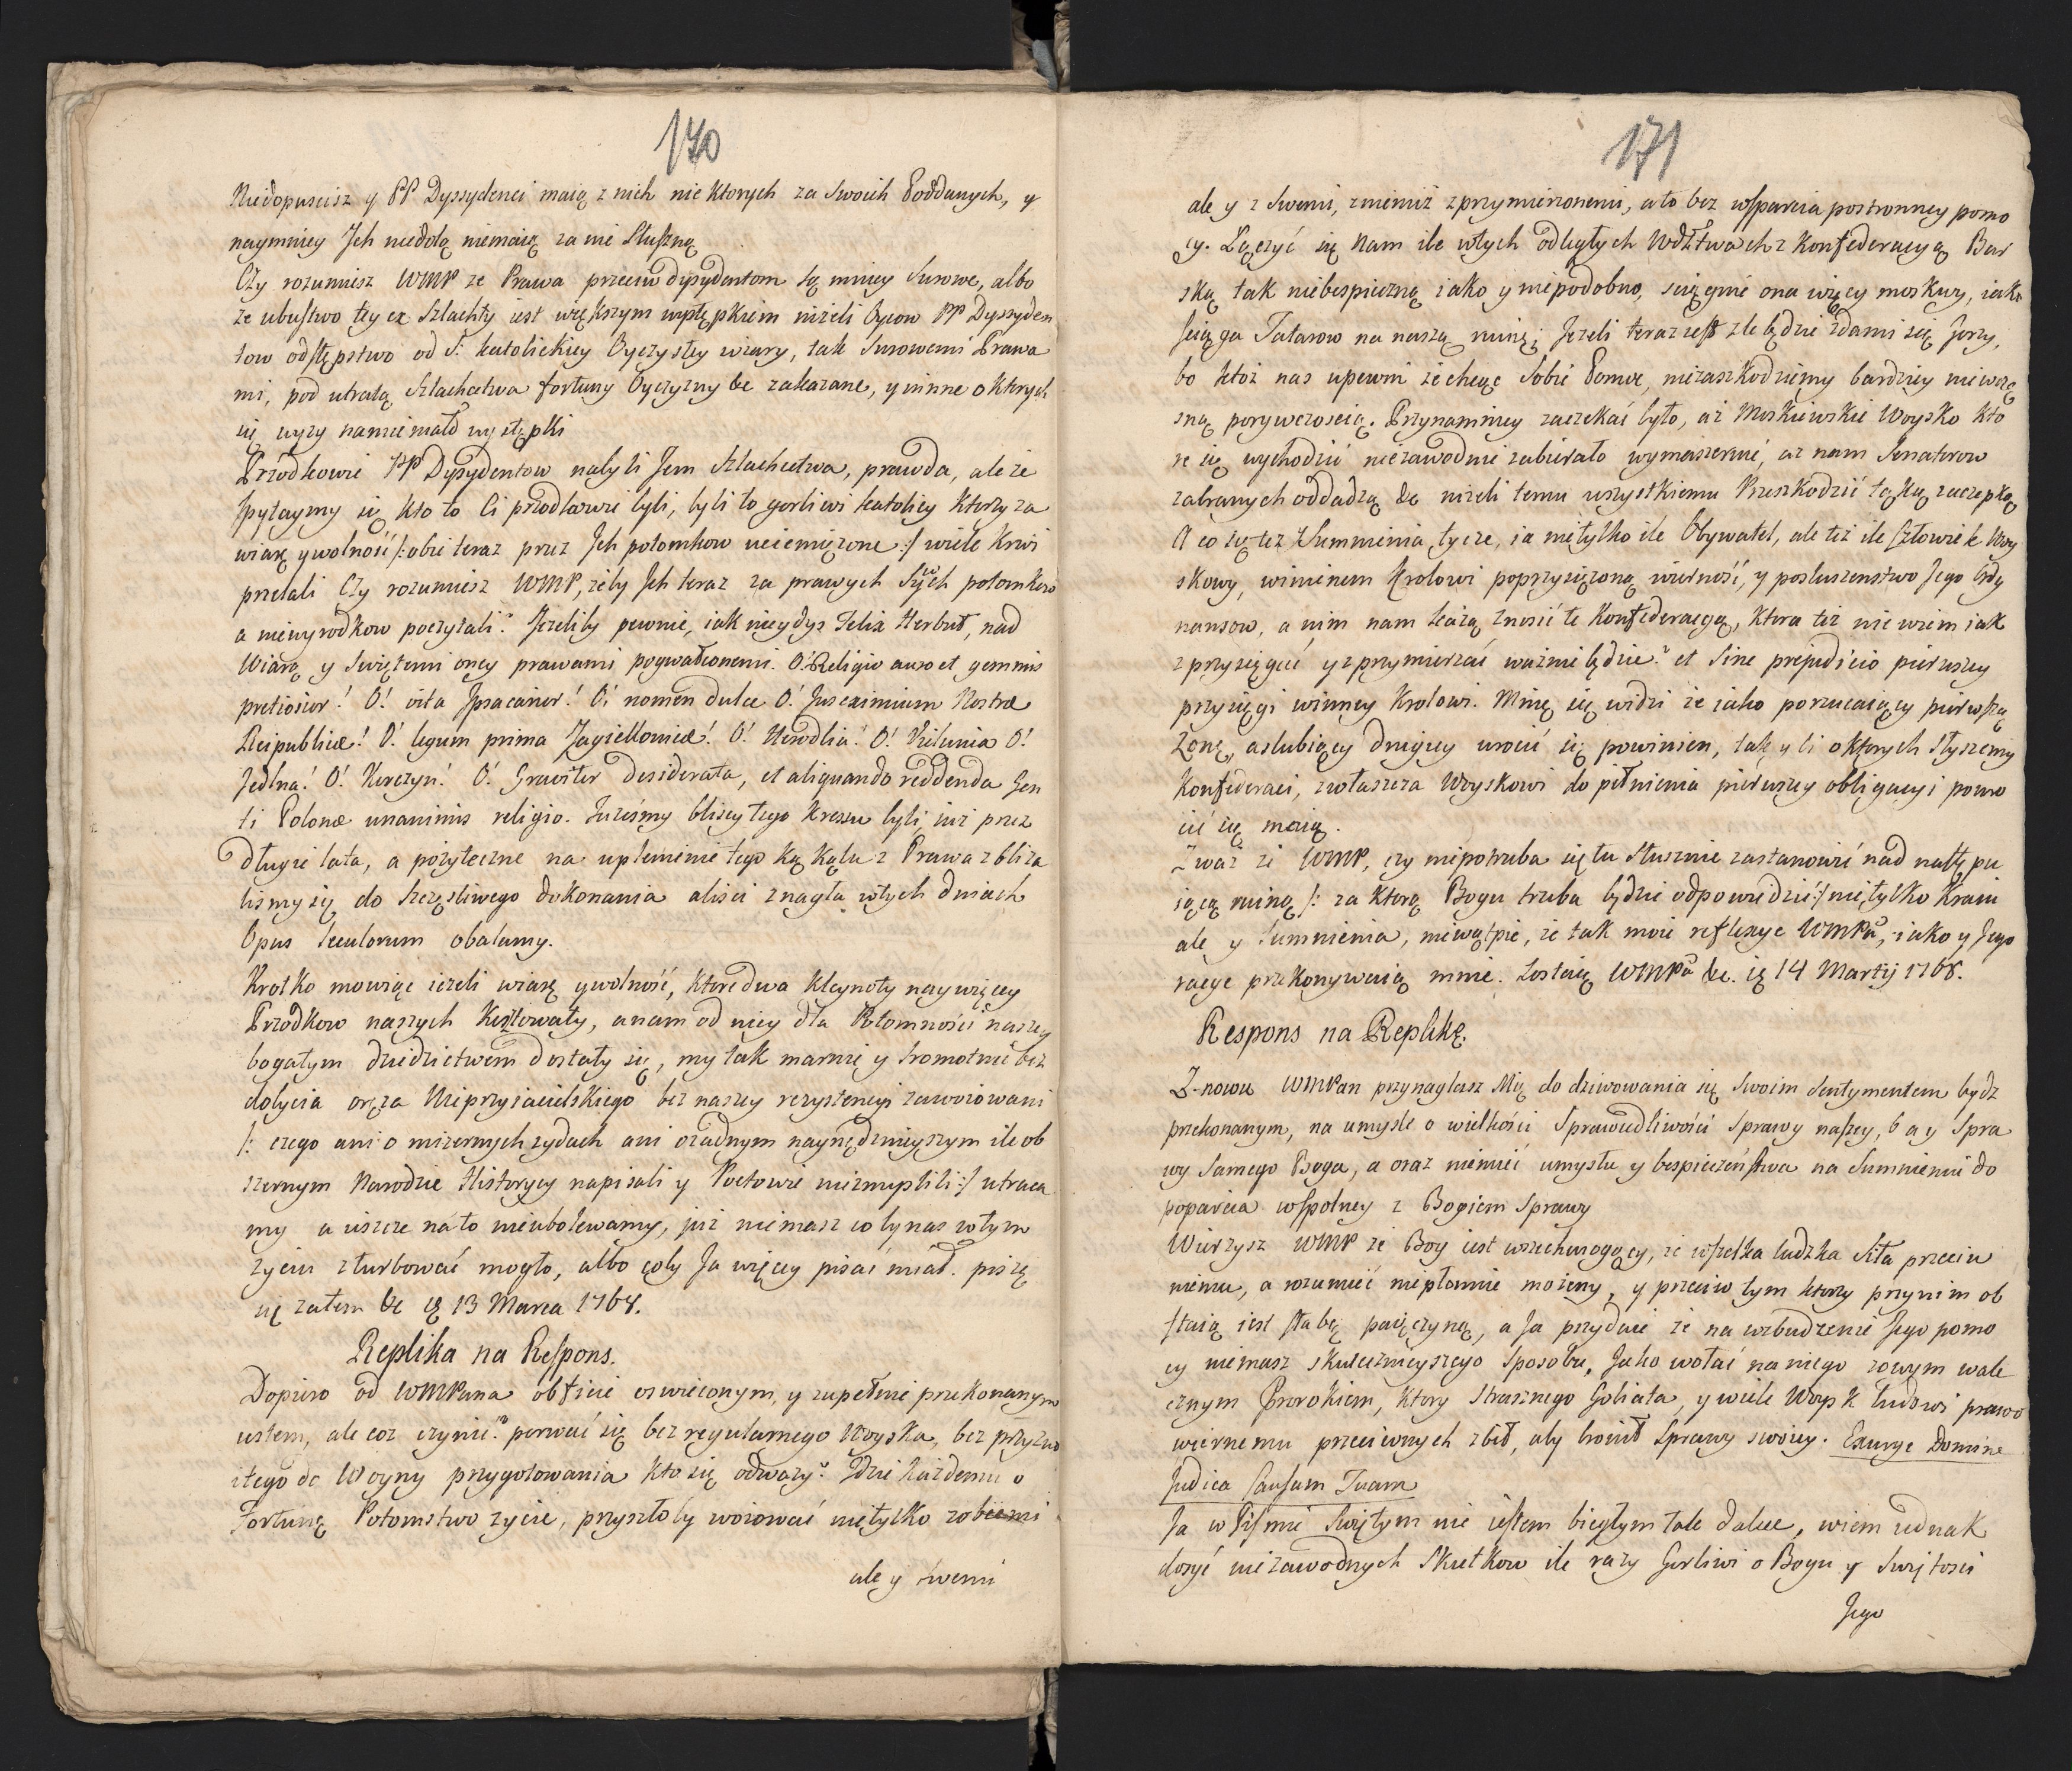 170
Niedopuscisz y PP Dyssydenci maią z nich nie ktorych za Swoich Poddanych, y
naymniey Jch niedolą niemaią za nie Słuszną
Czy rozumiesz WMP ze Prawa przeciw dyssydentom są mniey Surowe, albo
ze ubustwo tey ex Szlachty iest większym występkiem niżeli Oycow PP Dyssyden
tow odstępstwo od S. katolickiey Oyczystey wiary, tak Surowemi Prawa
mi, pod utratą Szlachectwa fortuny Oyczyzny &c zakazane, y inne o ktorych
się wyzy namieniało występki
Przodkowie PP Dyssydentow nabyli Jem Szlachectwa, prawda, ale że
spytaymy się kto to Ci przodkowie byli, byli to gorliwi katolicy ktorzy za
wiarę y wolność /: obie teraz przez Jch potomkow uciemiężone :/ wiele krwi
przelali Czy rozumiesz WMP, żeby Jch teraz za prawych Swych potomkow
a niewyrodkow poczytali? Jezeliby pewnie, iak niegdys Felix Herbut, nad
Wiarą y Swiętemi oney prawami pogwałconemi. O! Religio auro et gemmis
pretiosior! O! vita Jpsa carior! O! nomen dulce O! Jus eximium Nostræ
Reipublicæ! O! legum prima Jagiellonicæ! O! Horodlia! O! Vielunia O!
Jedlna! O! Korczyn! O! Graviter desiderata, et aliquando reddenda Gen
ti Polonæ unanimis religio. Jużeśmy bliscy tego kresu byli, iuż przez
długie lata, a pożyteczne na uplenienie tego Kąkolu z Prawa zbliża
lismy się do szczęsliwego dokonania aliści znagła wtych dniach
Opus Seculorum obalamy.
Krotko mowiąc ieżeli wiarę y wolność, ktore dwa kleynoty naywięcey
Przodkow naszych kosztowały, a nam od niey dla Potomności naszey
bogatym dziedzictwem dostały się, my tak marnie y sromotnie bez
dobycia oręża Nieprzyiacielskiego bez naszey rezystencyi zawoiowani
/: czego ani o mizernych zydach ani o żadnym naynędznieyszym ile ob
szernym Narodzie Historycy napisali y Poetowie niezmyslili :/ utraca
my a iszcze na to nieubolewamy, już niemasz coby nas wtym
życiu zturbować mogło, albo coby Ja więcey pisać miał. piszę
się zatem &c ią 13 Marca 1768.
Replika na Respons.
Dopiero od WMPana obficie oswieconym, y zupełnie przekonanym
ustem, ale coz czynić? porwać się bez regularnego Woyska, bez przyzwo
itego do Woyny przygotowania kto się odważy? Jdzie każdemu o
Fortunę Potomstwo życie, przyszłoby woiować nietylko z obcemi
ale y swemi
171
ale y z Swemi, zniemiż zprzymierzonemi, a to bez wsparcia postronney pomo
cy. Łączyć się Nam ile wtych odległych Wdztwach z Konfederacyą Bar
ską tak niebespieczną iako y niepodobno, sciągnie ona więcy moskwy, iako
sciąga Tatarow na naszą ruinę; Jezeli teraz iest zle będzie zdami się gorzy,
bo ktoż nas upewni że chcąc Sobie Pomoc, niezaszkodziemy bardziey niewcze
sną porywczoscią. Przynamniey zaczekać było, aż Moskiewskie Woysko kto
re się wychodzić niezawodnie zabierało wymaszeruie, aż nam Senatorow
zabranych oddadzą &c niżeli temu wszystkiemu Przeszkodzić taką zaczepką
A co się tez Summienia tycze, ia nietylko ile Obywatel, ale też ile Człowiek Woy
skowy, winienem Krolowi poprzysiężoną wierność, y posłuszenstwo Jego Ordy
nansow, a nim nam każą znosić te Konfederacyą, ktora też nie wiem iak
z przysięgać y zprzymierzać ważnie będzie? et Sine prejudicio pierwszey
przysięgi winney Krolowi. Mnię się widzi że iako porzucaiący pierwszą
Zonę, a slubiący drugiey wrocić się powinien, tak y ci o ktorych słyszemy
Konfederaci, zwłaszcza Woyskowi do pełnienia pierwszey obligacyi powro
cić się maią.
Zważ że WMP, czy niepotrzeba się tu słusznie zastanowić nad nastę pu
iącą ruiną /: za ktorą Bogu trzeba będzie odpowiedzieć :/ nietylko Kraiu
ale y Sumnienia, niewątpię, że tak moie reflexye WMPa, iako y Jego
racye przekonywaią mnie. Zostaię WMPa &c. ią 14 Martij 1768.
Respons na Replikę.
Z-nowu WMPan przynaglasz Mię do dziwowania się Swoim Sentymentem bydz
przekonanym, na umysle o wielkości Sprawiedliwości Sprawy naszey, b a y Spra
wy Samego Boga, a oraz niemieć umysłu y bespieczeństwa na Sumnieniu do
poparcia wspolney z Bogiem Sprawy
Wierzysz WMP że Bog iest wszechmogący, że wszelka ludzka Siła przeciw
niemu, a rozumieć niepłonnie możemy, y przeciw tym ktorzy przy nim ob
staią iest słabą paięczyną, a Ja przydaie że na wzbudzenie Jego pomo
cy niemasz skutecznieyszego Sposobu, Jako wołać na niego z owym wale
cznym Prorokiem, ktory Strasznego Goliata, y wiele Woysk Ludowi prawo
wiernemu przeciwnych zbił, aby bronił Sprawy swoiey. Exurge Domine
Judica Causam Tuam
Ja w Pismie Swiętym nie iestem biegłym tak dalece, wiem iednak
dosyć niezawodnych Skutkow ile razy Gorliwi o Bogu y Swiętosci
Jego